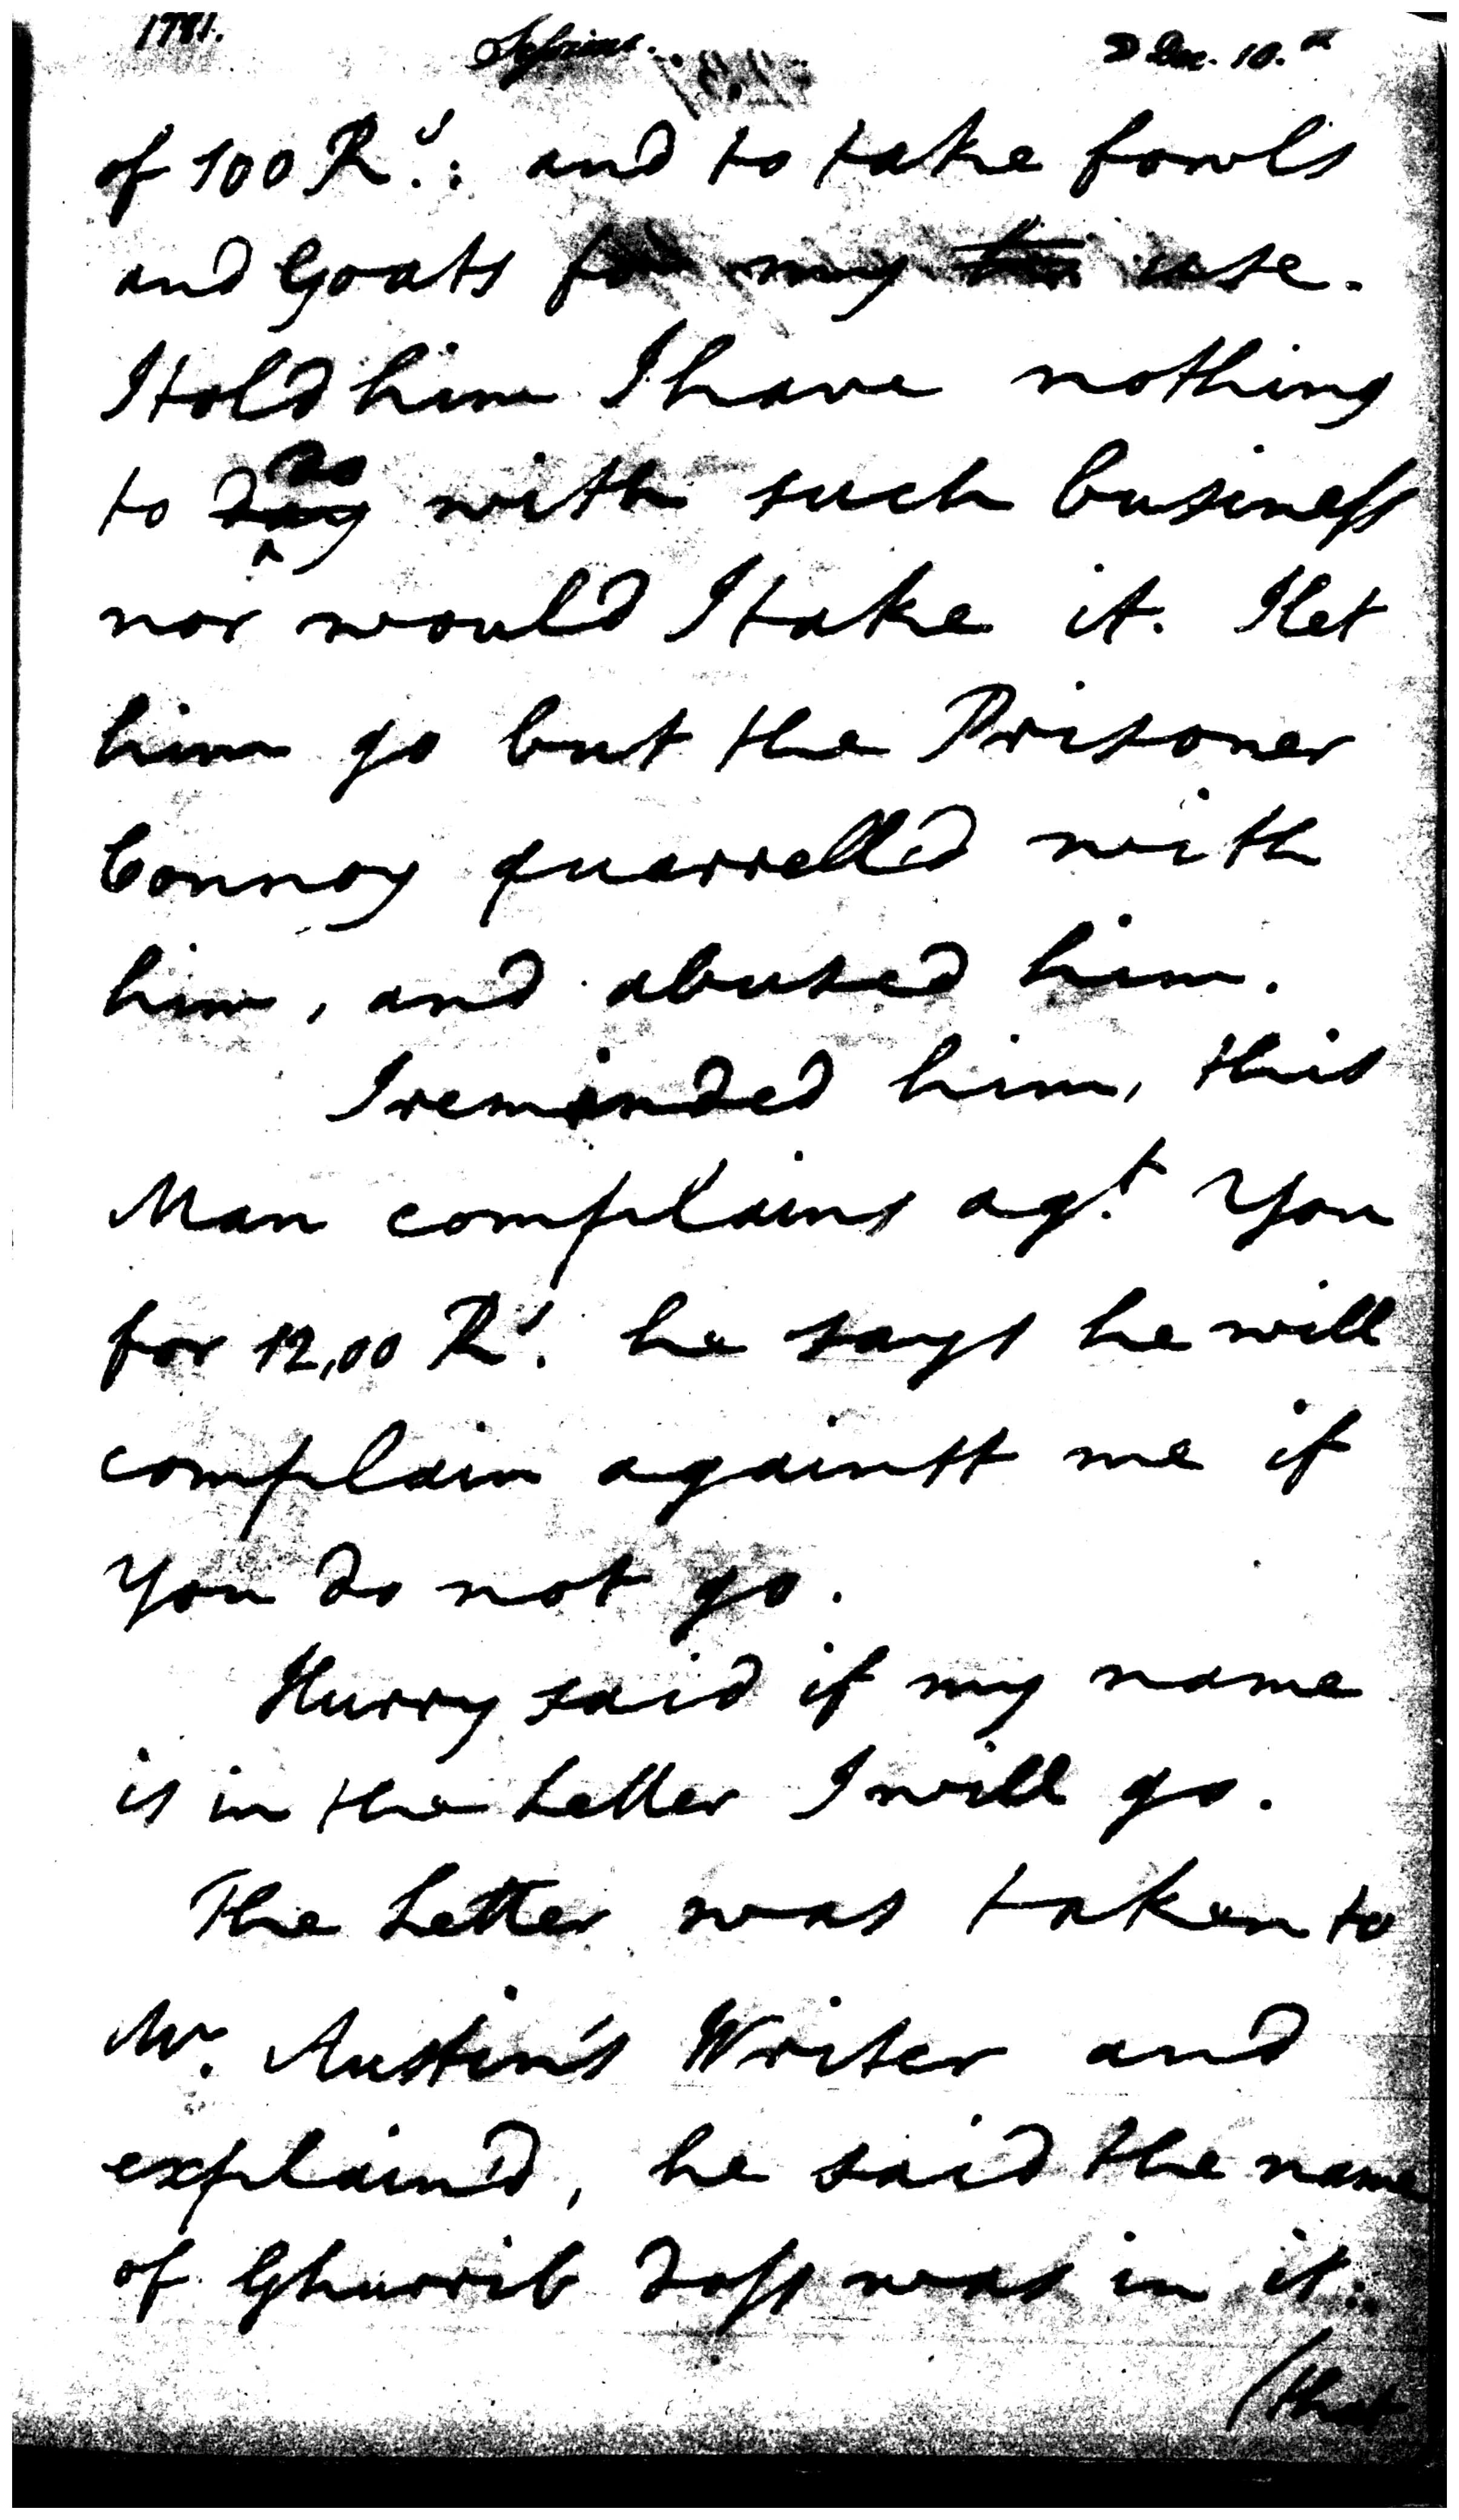 1781. Dec. 10.th
of 100 Rs.: and to take fowls
and Goats for my use.
I told him I have nothing
to do with such business
nor would I take it. I let
him go but the Prisoner
Connoy quarrell'd with
him, and abused him.
I reminded him, this
Man complains agt. You
for 12,00 Rs. he says he will
complain against me if
You do not go.
Hurry said if my name
is in the Letter I will go.
The Letter was taken to
Mr. Austin's Writer and
explain'd, he said the name
of Ghurrib Doss was in it:
(that